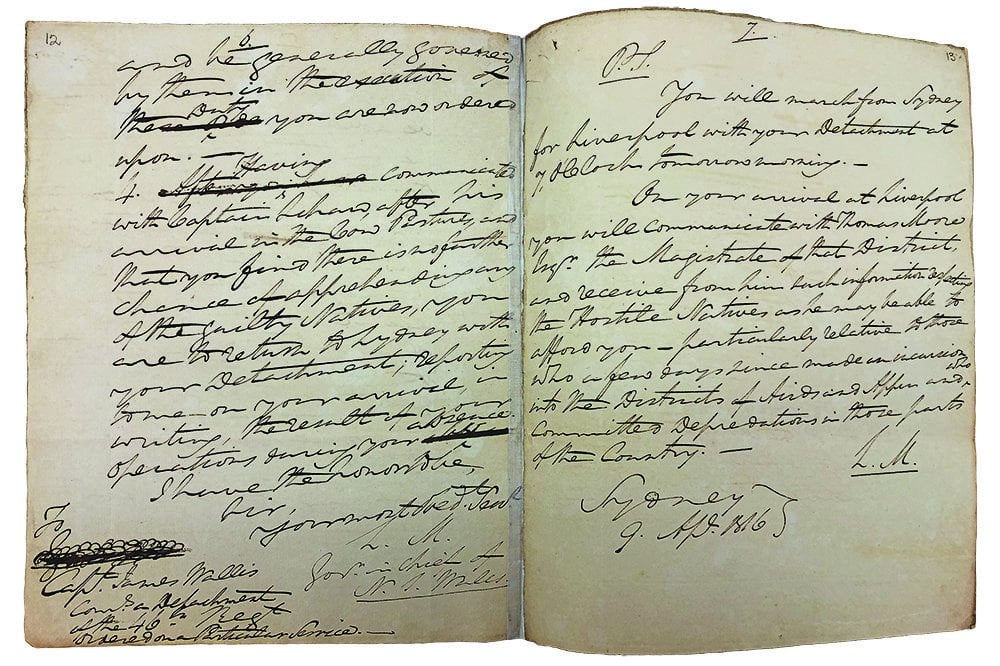 12
6.
and be generally governed
by them in the execution of
the Duty you are now ordered
upon. —
4. Having communicated
with Captain Schaw, after his
arrival in the Cow Pastures, and
that you find there is no further
chance of apprehending any
of the guilty Natives, you
are to return to Sydney with
your Detachment, reporting
to me on your arrival, in
writing, the result of your
operations during your absence.
I have the honor to be,
Sir,
Your most Obedt. Servt.
L. M.
Govr. in chief of
N. S. Wales.
To
Capt. James Wallis
Comg. a Detachment
of the 46th. Regt.
ordered on a Particular Service. —
7.
13
P.S.
You will march from Sydney
for Liverpool with your Detachment at
7, O'Clock tomorrow morning. —
On your arrival at Liverpool
you will communicate with Thomas Moore
Esqr. the Magistrate of that District
and receive from him such information respecting
the Hostile Natives as he may be able to
afford you — particularly relative to those
who a few days since made an incursion
into the Districts of Airds and Appin and who
committed Depredations in those parts
of the Country. —
L. M.
Sydney
9. Apl. 1816